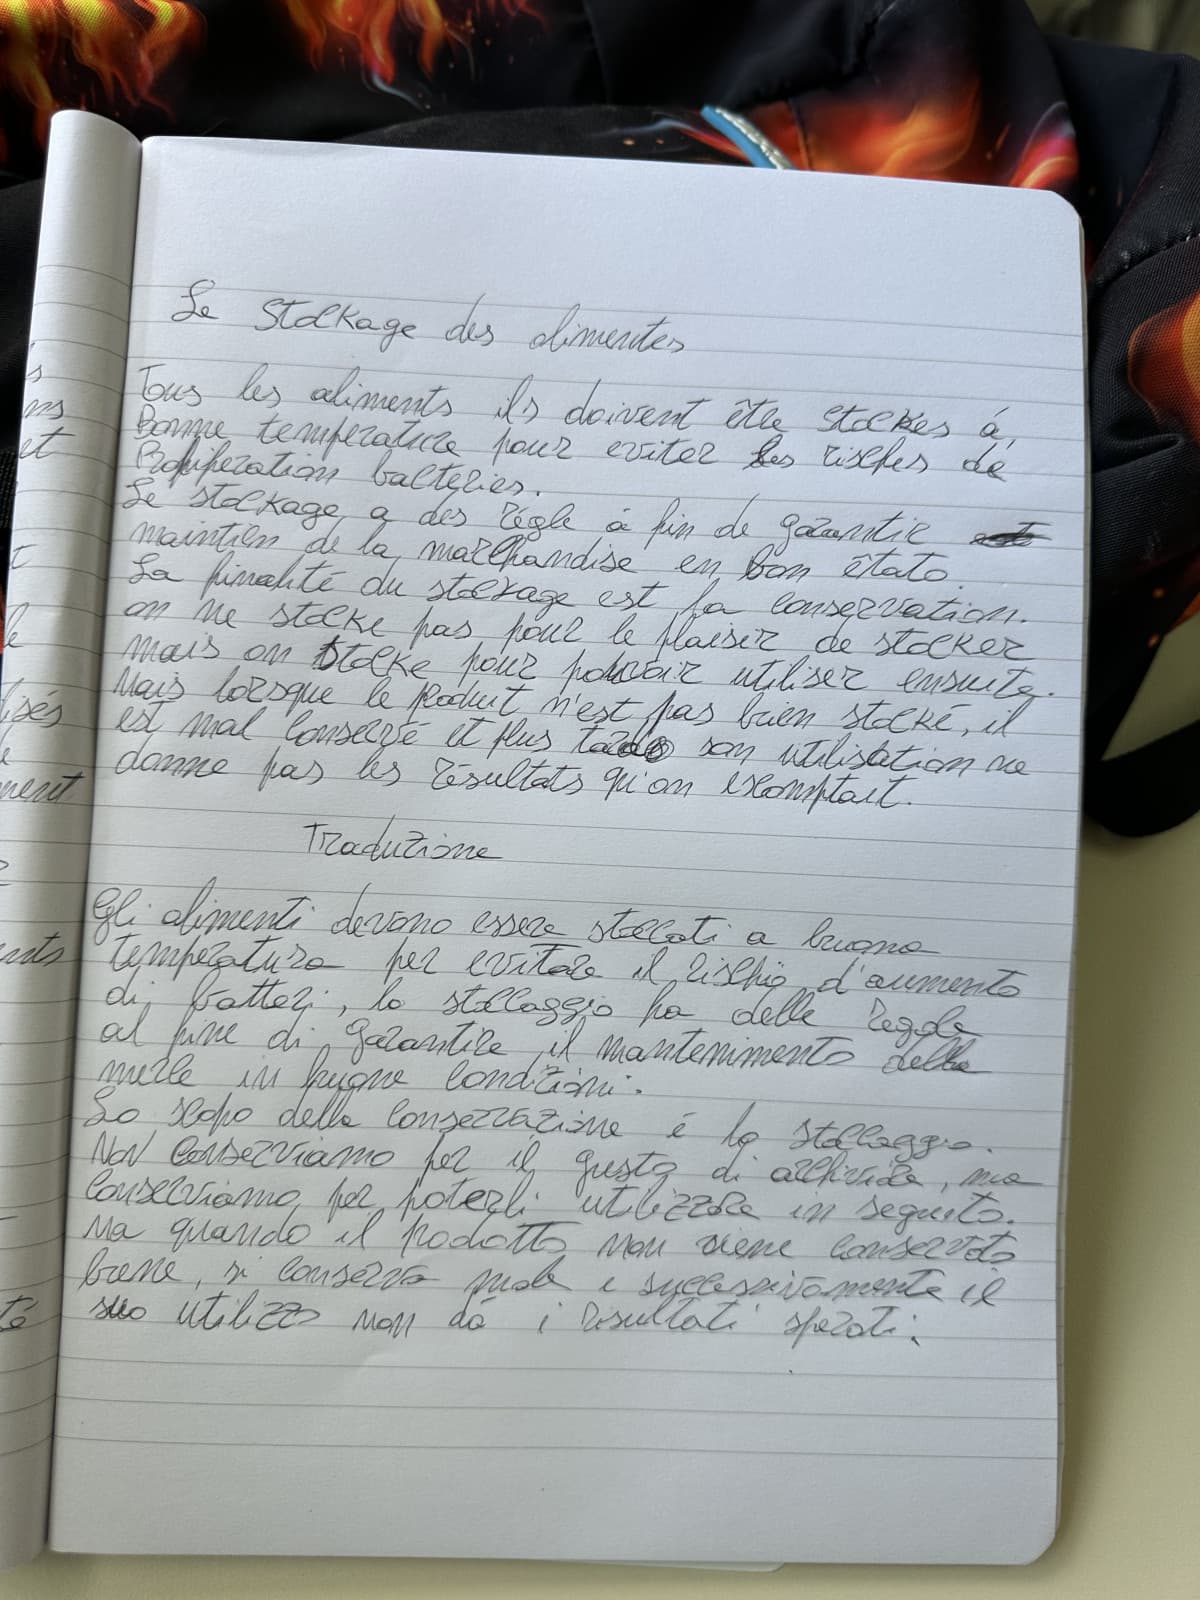 Le Stockage des alimentes
Tous les aliments ils doivent être stockes à,
Bonne temperature pour eviter les risches de
Proliferation bacteries.
Le stockage a des régle à fin de garantie
maintien de la marchandise en bon êtato.
La finalité du stockage est la conservation.
on ne stocke pas pour le plaisir de stocker
mais on stocke pour pouvoir utiliser ensuite.
Mais lorsque le produit n'est pas bien stocké, il
est mal conservé et plus son utilisation ne
donne pas les résultats qu'on escomptait.
Traduzione
Gli alimenti devono essere stoccati a buona
temperatura per evitare il rischio d'aumento
di batteri, lo stoccaggio ha delle regole
al fine di garantire il mantenimento della
merce in buone condizioni.
Lo scopo della conservazione é lo stoccaggio.
Non conserviamo per il gusto di archivire, ma
conserviamo per poterli utilizzare in seguito.
Ma quando il prodotto non viene conservato
bene, si conserva male e successivamente il
suo utilizzo non dà i risultati sperati.
s
ns
et
t
le
lisés
le
ment
ents
té